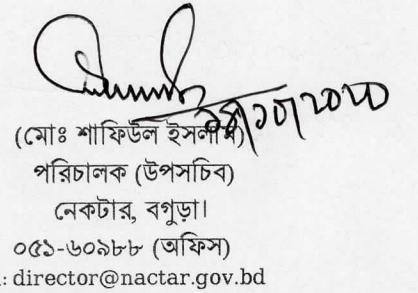 (মোঃ শাফিউল ইসলাম)
পরিচালক (উপসচিব)
নেকটার, বগুড়া।
০৫১-৬০৯৮৮ (অফিস)
: director@nactar.gov.bd